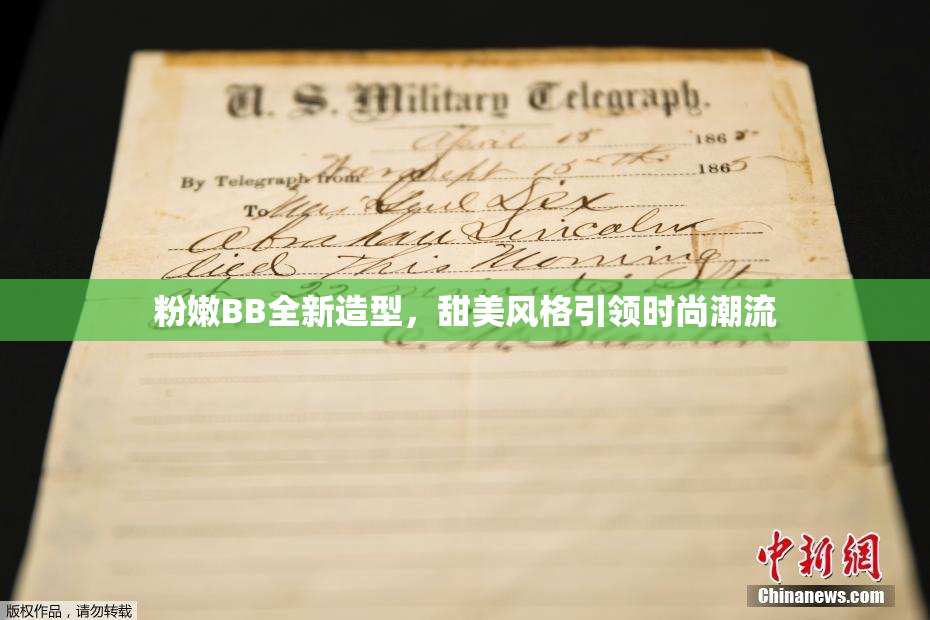 U. S. Military Telegraph.
April 15 1865
By Telegraph from War Dept 15th 1865
To Maj Genl Dix
Abraham Lincoln
died This Morning
at 22 minutes after
粉嫩BB全新造型，甜美风格引领时尚潮流
E. M. Stanton
中新网
Chinanews.com
版权作品，请勿转载